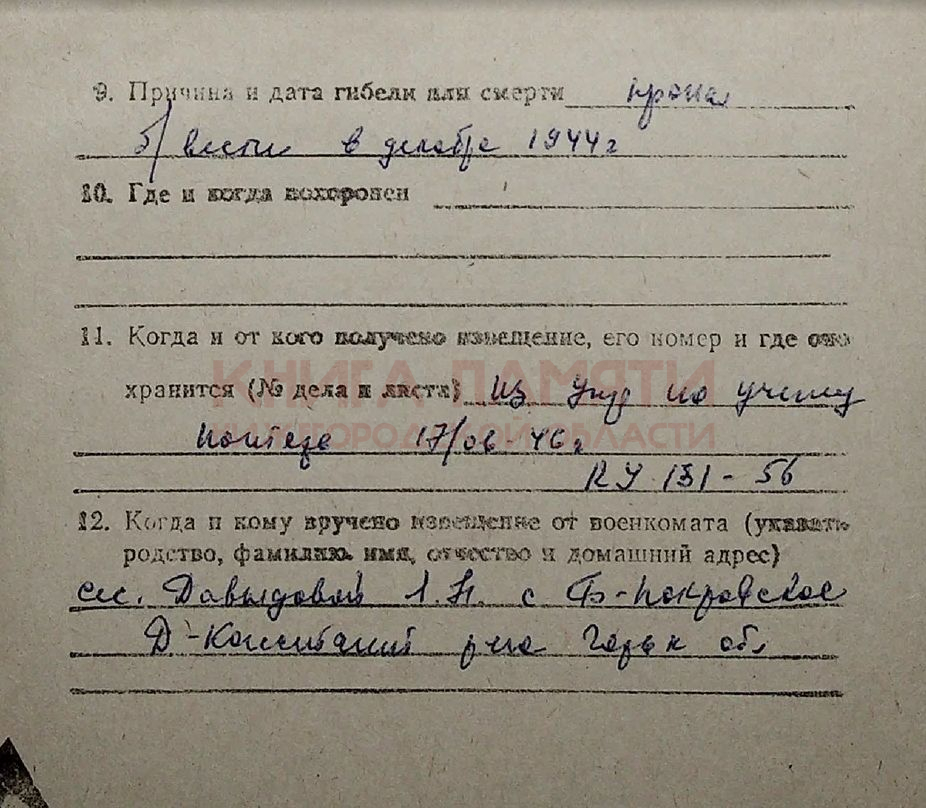 9. Причина и дата гибели или смерти пропал
б/вести в декабре 1944 г
10. Где и когда похоронен
11. Когда и от кого получено извещение, его номер и где оно
КНИГА ПАМЯТИ
хранится (№ дела и листа) из Упр по учету
НИЖЕГОРОДСКОЙ ОБЛАСТИ
потерь 17/06-46 г
131-56
12. Когда и кому вручено извещение от военкомата (указать
родство, фамилию, имя, отчество и домашний адрес)
сес. Давыдовой с -Покровское
Д-Констант р-на Горьк обл